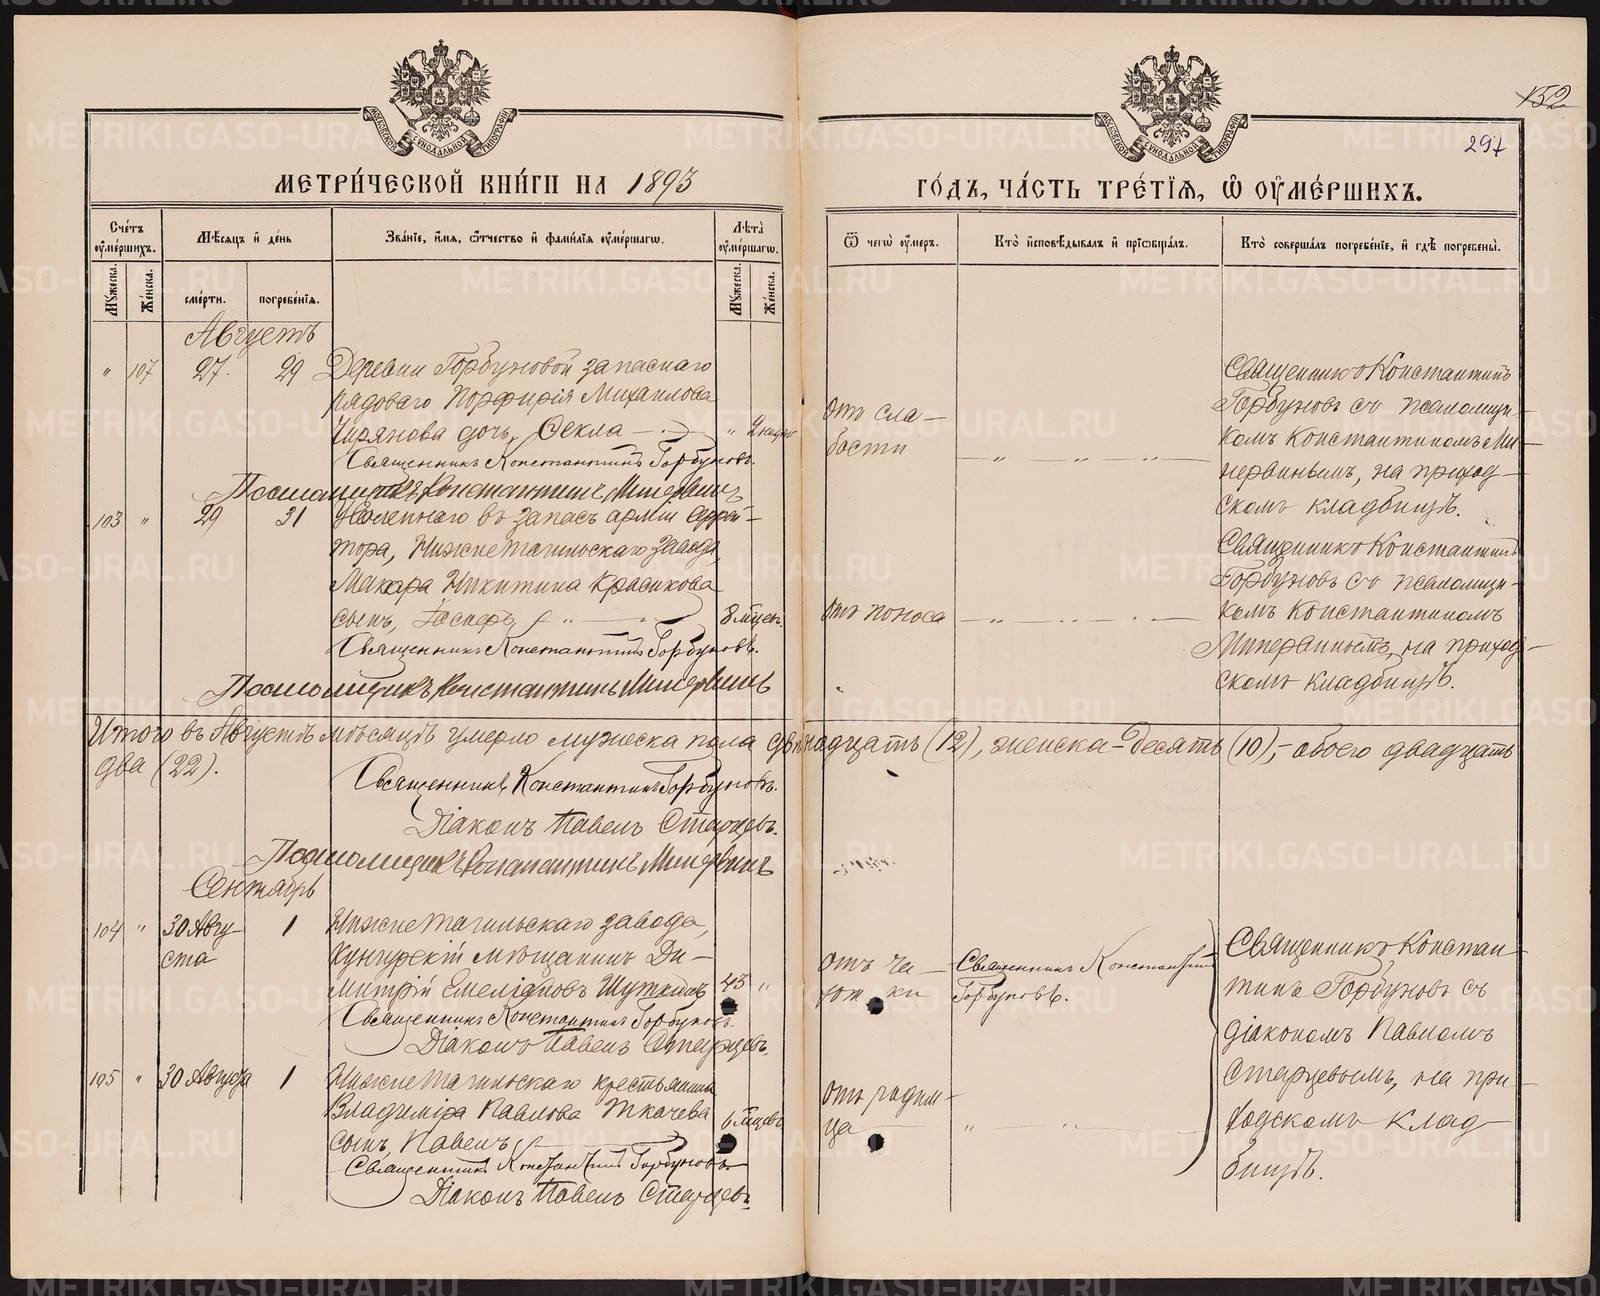 152
297
МЕТРИ́ЧЕСКОЙ КНИ́ГИ НА 1893
ГО́ДЪ, ЧА́СТЬ ТРЕ́ТЇѦ, Ѡ҆ ОУ҆МЕ́РШИХЪ.
Сче́тъ оу҆ме́ршихъ.
Мѣ́сѧцъ и҆ де́нь
Зва́нїе, и҆́мѧ, ѻ҆́тчество и҆ фами́лїѧ оу҆ме́ршагѡ.
Лѣ́та оу҆ме́ршагѡ.
Ѿ чегѡ̀ оу҆́меръ.
Кто̀ и҆сповѣ́дывалъ и҆ прїѡбща́лъ.
Кто̀ соверша́лъ погребе́нїе, и҆ гдѣ̀ погребены̀.
Мꙋ́жеска.
Же́нска.
сме́рти.
погребе́нїѧ.
Мꙋ́жеска.
Же́нска.
Августъ
" 107 27. 29 Деревни Горбуновой запаснаго
рядоваго Порфирія Михаилова
Ширянова дочь, Ѳекла " 2 недѣл
Священникъ Константинъ Горбуновъ.
Псаломщикъ Константинъ Минервинъ
отъ сла-
бости
Священникъ Константинъ
Горбуновъ съ псаломщи-
комъ Константиномъ Ми-
нервинымъ, на приход-
скомъ кладбищѣ.
103 " 29 31 Уволеннаго въ запасъ арміи ефрей-
тора, Нижнетагильскаго завода,
Макара Никитина Красикова
сынъ, 8 мцевъ.
Священникъ Константинъ Горбуновъ.
Псаломщикъ Константинъ Минервинъ
отъ поноса
Священникъ Константинъ
Горбуновъ съ псаломщи-
комъ Константиномъ
Минервинымъ, на приход-
скомъ кладбищѣ.
Итого въ Августѣ мѣсяцѣ умерло мужеска пола двѣнадцать (12), женска-десять (10),- обоего двадцать
два (22).
Священникъ Константинъ Горбуновъ.
Діаконъ Павелъ Старцевъ.
Псаломщикъ Константинъ Минервинъ
Сентябрь
104 " 30 Авгу-
ста 1 Нижнетагильскаго завода,
Кунгурскій мѣщанинъ Ди-
митрій Емеліановъ Шуткинъ 43 "
Священникъ Константинъ Горбуновъ.
Діаконъ Павелъ Старцевъ.
отъ ча-
хотки
Священникъ Константинъ
Горбуновъ.
Священникъ Констан-
тинъ Горбуновъ съ
діакономъ Павломъ
Старцевымъ, на при-
ходскомъ клад-
бищѣ.
105 " 30 Августа 1 Нижнетагильскаго крестьянина
Владиміра Павлова Ткачева
сынъ, Павелъ 6 мцевъ
Священникъ Константинъ Горбуновъ
Діаконъ Павелъ Старцевъ.
отъ родим-
ца